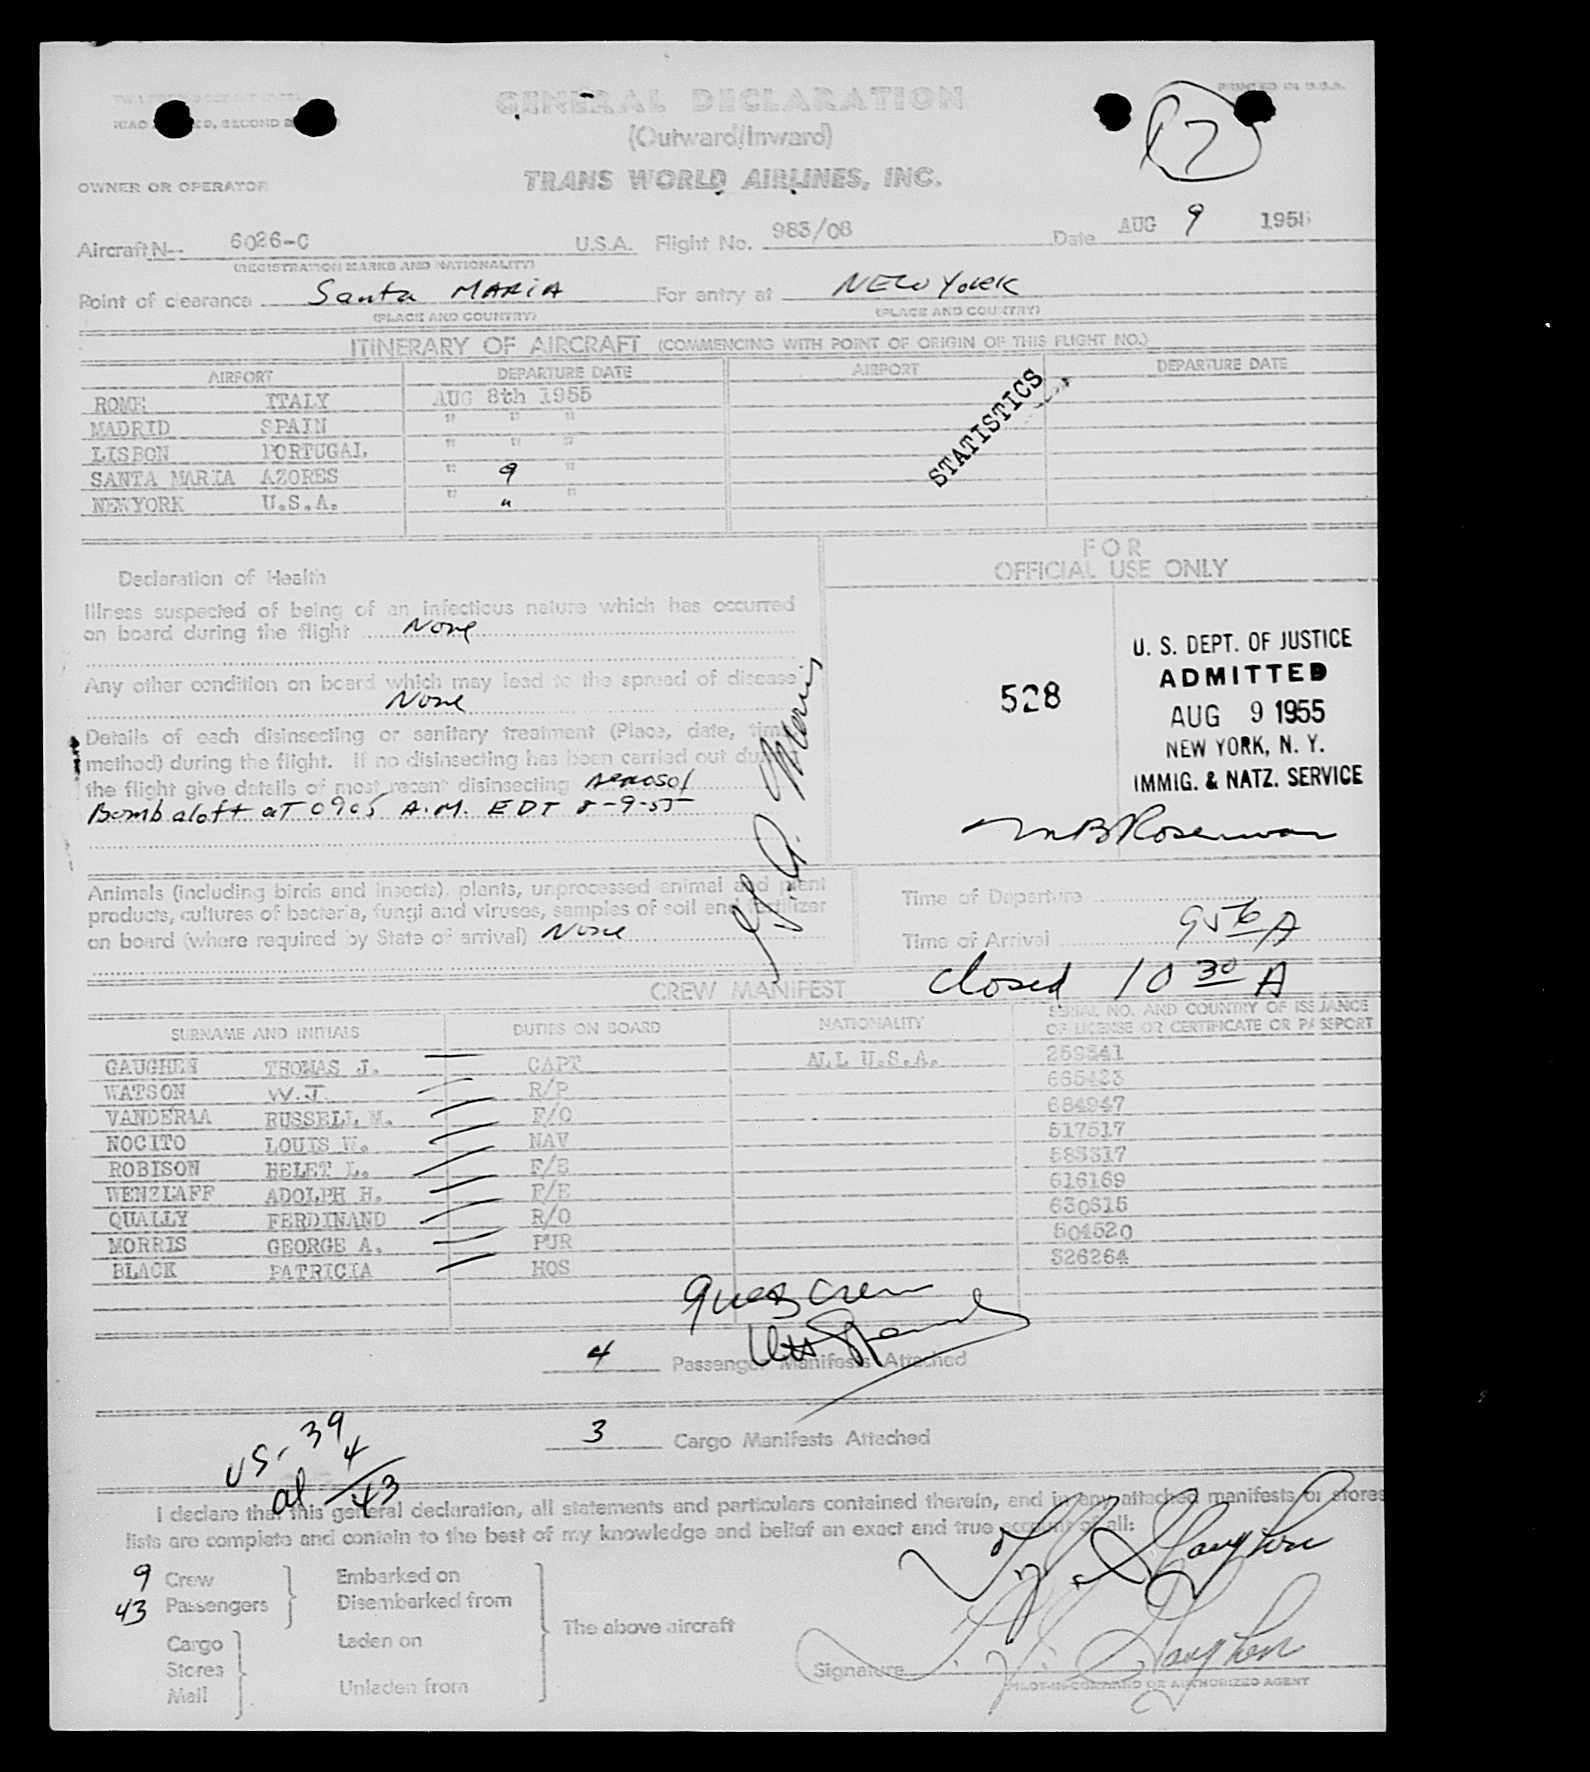 PRINTED IN U.S.A.
17
GENERAL DECLARATION
(Outward/Inward)
TRANS WORLD AIRLINES, INC.
OWNER OR OPERATOR
Aircraft N-- 6026-C U.S.A. Flight No. 983/08 Date AUG 9 1955
(REGISTRATION MARKS AND NATIONALITY)
Point of clearance Santa MARIA For entry at NEW YORK
(PLACE AND COUNTRY) (PLACE AND COUNTRY)
ITINERARY OF AIRCRAFT (COMMENCING WITH POINT OF ORIGIN OF THIS FLIGHT NO.)
AIRPORT DEPARTURE DATE AIRPORT DEPARTURE DATE
ROME ITALY AUG 8th 1955
MADRID SPAIN " " "
LISBON PORTUGAL " " "
SANTA MARIA AZORES " 9 "
NEWYORK U.S.A. " " "
STATISTICS
FOR
OFFICIAL USE ONLY
Declaration of Health
Illness suspected of being of an infectious nature which has occurred
on board during the flight None
Any other condition on board which may lead to the spread of disease
None
Details of each disinsecting or sanitary treatment (Place, date, time,
method) during the flight. If no disinsecting has been carried out during
the flight give details of most recent disinsecting Aerosol
Bomb aloft at 0905 A.M. EDT 8-9-55
G. A. Morris
528
U. S. DEPT. OF JUSTICE
ADMITTED
AUG 9 1955
NEW YORK, N. Y.
IMMIG. & NATZ. SERVICE
Animals (including birds and insects), plants, unprocessed animal and plant
products, cultures of bacteria, fungi and viruses, samples of soil and fertilizer
on board (where required by State of arrival) None
Time of Departure
Time of Arrival 956 A
closed 10 30 A
CREW MANIFEST
SURNAME AND INITIALS DUTIES ON BOARD NATIONALITY SERIAL NO. AND COUNTRY OF ISSUANCE
OF LICENSE OR CERTIFICATE OR PASSPORT
GAUGHEN THOMAS J. CAPT ALL U.S.A. 259341
WATSON W.J. R/P 665423
VANDERAA RUSSELL M. F/O 684947
NOCITO LOUIS W. NAV 517517
ROBISON BELET L. F/E 585317
WENZLAFF ADOLPH H. F/E 616169
QUALLY FERDINAND R/O 630615
MORRIS GEORGE A. PUR 504520
BLACK PATRICIA HOS 526264
4 Passenger Manifests Attached
3 Cargo Manifests Attached
US- 39
al 4
43
I declare that this general declaration, all statements and particulars contained therein, and in any attached manifests or stores
lists are complete and contain to the best of my knowledge and belief an exact and true account of all:
9 Crew Embarked on
43 Passengers Disembarked from
The above aircraft
Cargo Laden on
Stores
Mail Unladen from
Signature T. J. Gaughen
PILOT-IN-COMMAND OR AUTHORIZED AGENT